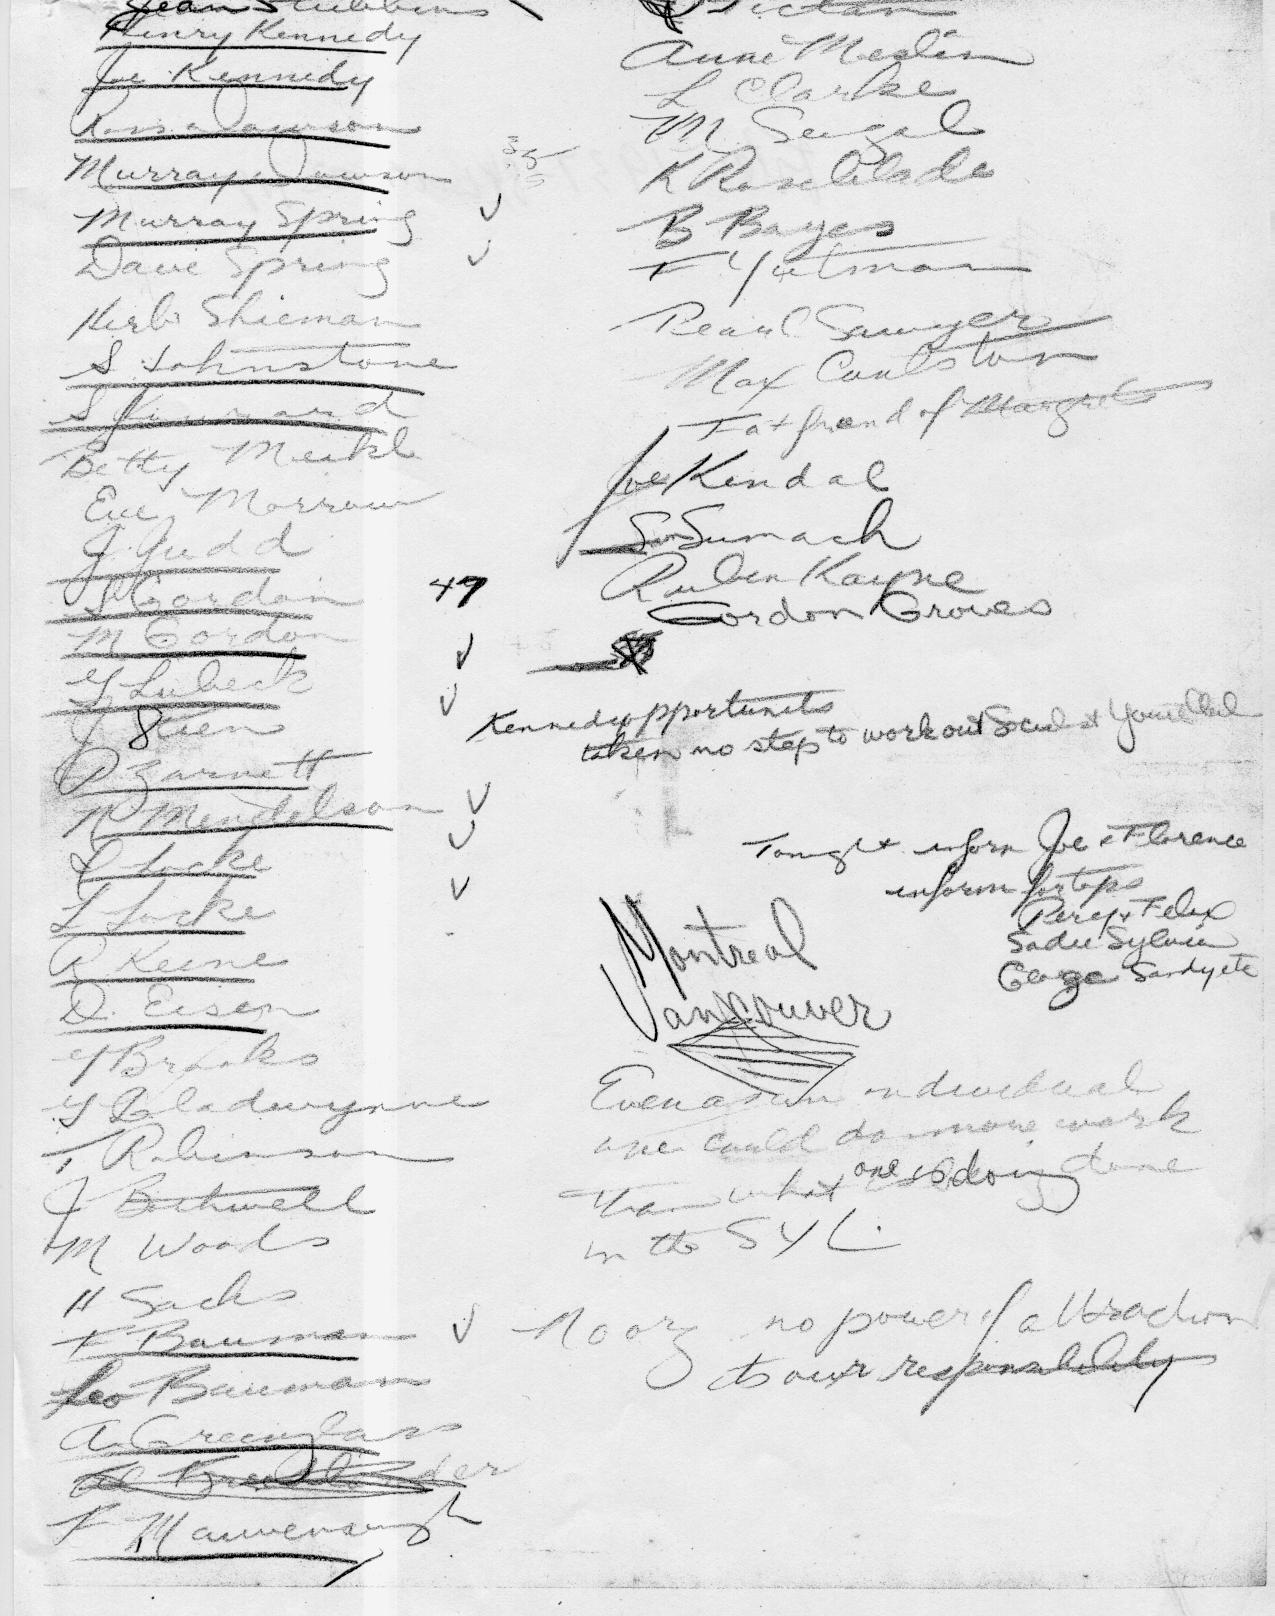 Jean Stubbins
Henry Kennedy
Joe Kennedy
Ross Dowson
Murray Dowson
Murray Spring
Dave Spring
Herb Shieman
S Johnstone
S Kinnaird
Betty Meikle
Eve Morrow
J. Judd
S Gordon
M Gordon
Y Lubeck
J
P Zarnett
N Mendelson
L Locke
L Locke
R Keene
D. Eisen
Y Brooks
Y Gladwynne
T Robinson
J Bothwell
M Woods
H Sacks
F Bauman
Leo Bauman
A. Greenglass
F
35
47
Anne Meslin
L Clarke
M. Seigal
K Roseblade
B Bayes
F Yutman
Pearl Sawyer
Max Coulston
Fat friend of Margret
Joe Kendal
Sumach
Ruben Kayne
Gordon Groves
Kennedy opportunits
taken no step to work out
Tonight inform Joe & Florence
inform for tops
Percy & Felix
Sadie Sylvia
George Sandy etc
Montreal
Vancouver
Even as an individual
one could do more work
than what one is doing done
in the SYL.
No org no power of attraction
its our responsibility